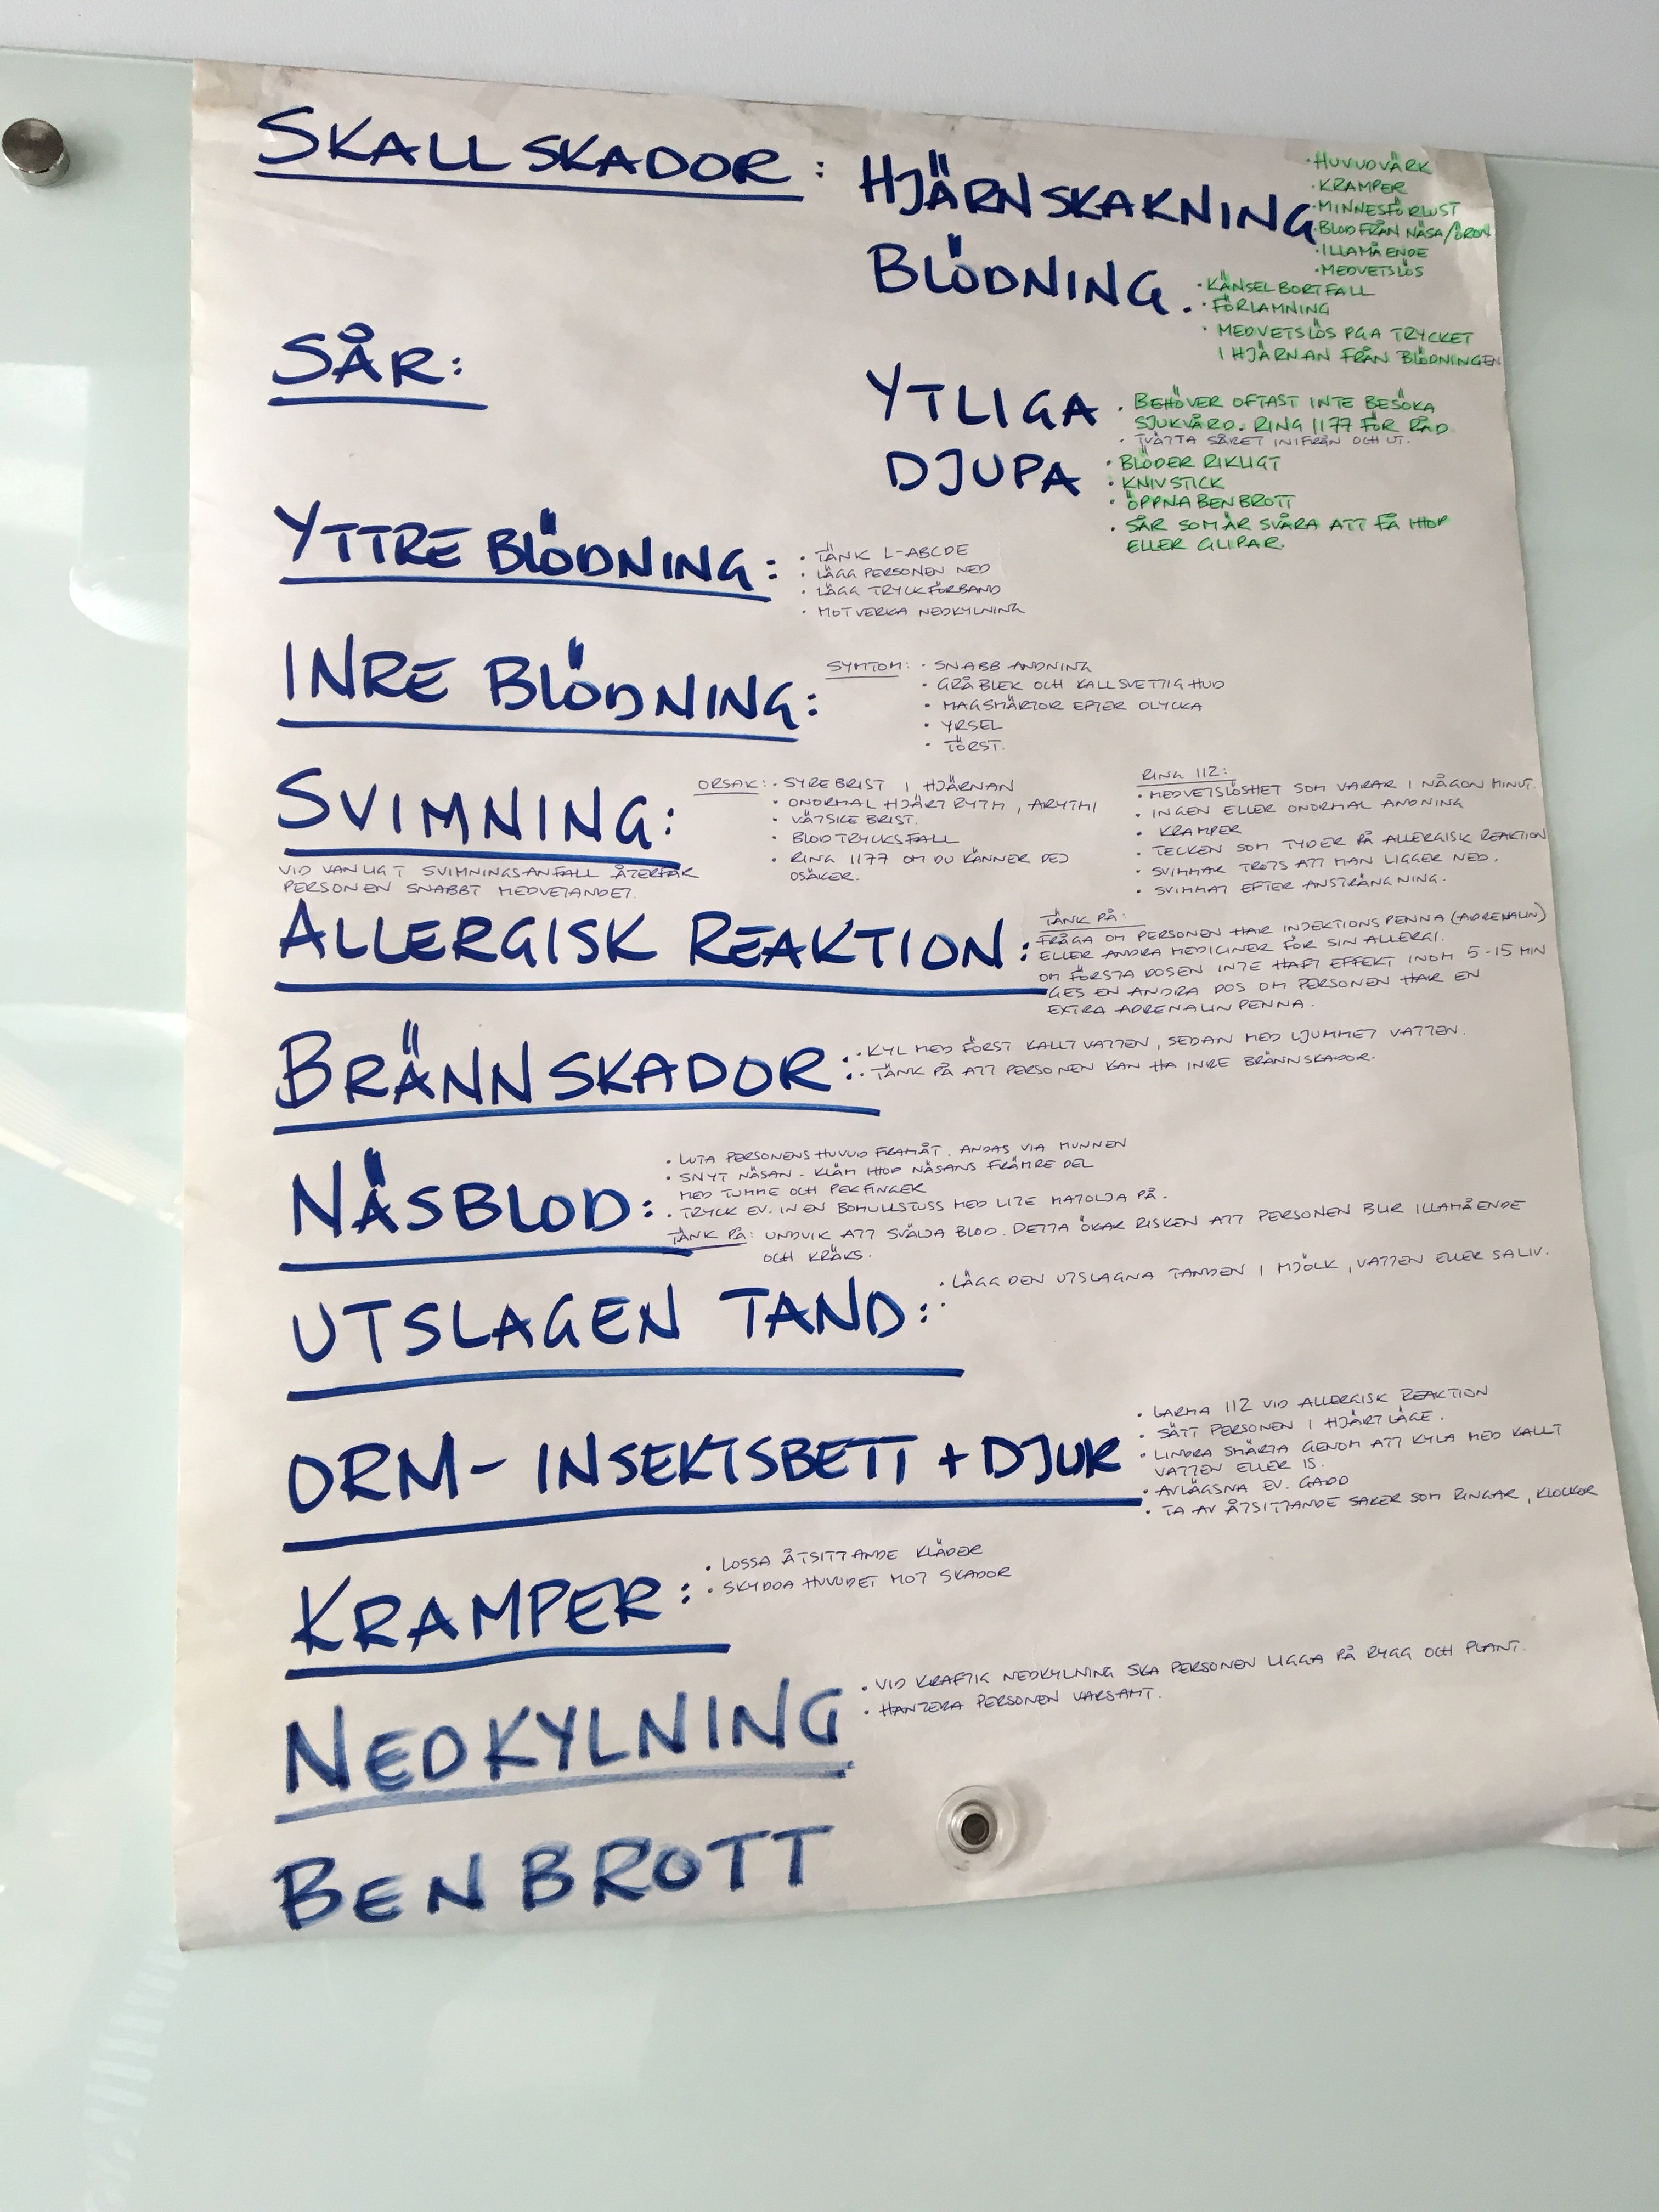 SKALLSKADOR : HJÄRNSKAKNING
· HUVUDVÄRK
· KRAMPER
· MINNESFÖRLUST
· BLOD FRÅN NÄSA/ÖRON
· ILLAMÅENDE
· MEDVETSLÖS
BLÖDNING.
· KÄNSELBORTFALL
· FÖRLAMNING
· MEDVETSLÖS PGA TRYCKET
I HJÄRNAN FRÅN BLÖDNINGEN
SÅR:
YTLIGA
· BEHÖVER OFTAST INTE BESÖKA
SJUKVÅRD. RING 1177 FÖR RÅD
· TVÄTTA SÅRET INIFRÅN OCH UT.
DJUPA
· BLÖDER RIKLIGT
· KNIVSTICK
· ÖPPNA BENBROTT
· SÅR SOM ÄR SVÅRA ATT FÅ IHOP
ELLER GLIPAR.
YTTRE BLÖDNING:
· TÄNK L-ABCDE
· LÄGG PERSONEN NED
· LÄGG TRYCKFÖRBAND
· MOTVERKA NEDKYLNING
INRE BLÖDNING:
SYMTOM: · SNABB ANDNING
· GRÅBLEK OCH KALLSVETTIG HUD
· MAGSMÄRTOR EFTER OLYCKA
· YRSEL
· TÖRST.
SVIMNING:
VID VANLIGT SVIMNINGSANFALL ÅTERFÅR
PERSONEN SNABBT MEDVETANDET.
ORSAK: · SYREBRIST I HJÄRNAN
· ONORMAL HJÄRTRYTM, ARYTMI
· VÄTSKEBRIST.
· BLODTRYCKSFALL
· RING 1177 OM DU KÄNNER DEJ
OSÄKER.
RING 112:
· MEDVETSLÖSHET SOM VARAR I NÅGON MINUT.
· INGEN ELLER ONORMAL ANDNING
· KRAMPER
· TECKEN SOM TYDER PÅ ALLERGISK REAKTION
· SVIMMAR TROTS ATT MAN LIGGER NED.
· SVIMMAT EFTER ANSTRÄNGNING.
ALLERGISK REAKTION:
TÄNK PÅ:
FRÅGA OM PERSONEN HAR INJEKTIONSPENNA (ADRENALIN)
ELLER ANDRA MEDICINER FÖR SIN ALLERGI.
OM FÖRSTA DOSEN INTE HAFT EFFEKT INOM 5-15 MIN
GES EN ANDRA DOS OM PERSONEN HAR EN
EXTRA ADRENALINPENNA.
BRÄNNSKADOR:
· KYL MED FÖRST KALLT VATTEN, SEDAN MED LJUMMET VATTEN.
· TÄNK PÅ ATT PERSONEN KAN HA INRE BRÄNNSKADOR.
NÄSBLOD:
· LUTA PERSONENS HUVUD FRAMÅT. ANDAS VIA MUNNEN
· SNYT NÄSAN - KLÄM IHOP NÄSANS FRÄMRE DEL
MED TUMME OCH PEKFINGER
· TRYCK EV. IN EN BOMULLSTUSS MED LITE MATOLJA PÅ.
TÄNK PÅ: UNDVIK ATT SVÄLJA BLOD. DETTA ÖKAR RISKEN ATT PERSONEN BLIR ILLAMÅENDE
OCH KRÄKS.
UTSLAGEN TAND:
· LÄGG DEN UTSLAGNA TANDEN I MJÖLK, VATTEN ELLER SALIV.
·
ORM- INSEKTSBETT + DJUR
· LARMA 112 VID ALLERGISK REAKTION
· SÄTT PERSONEN I HJÄRTLÄGE.
· LINDRA SMÄRTA GENOM ATT KYLA MED KALLT
VATTEN ELLER IS.
· AVLÄGSNA EV. GADD
· TA AV ÅTSITTANDE SAKER SOM RINGAR, KLOCKOR
KRAMPER:
· LOSSA ÅTSITTANDE KLÄDER
· SKYDDA HUVUDET MOT SKADOR
NEDKYLNING
· VID KRAFTIG NEDKYLNING SKA PERSONEN LIGGA PÅ RYGG OCH PLANT.
· HANTERA PERSONEN VARSAMT.
BENBROTT